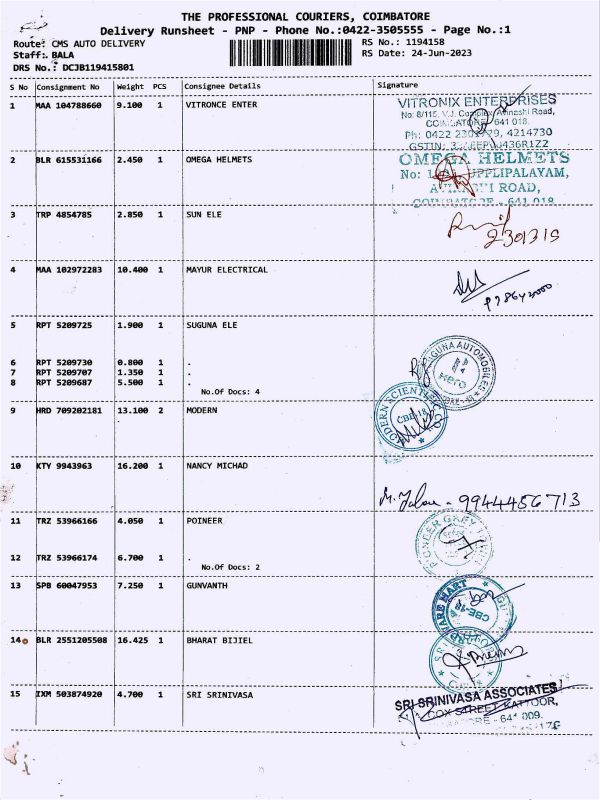 THE PROFESSIONAL COURIERS, COIMBATORE
Delivery Runsheet - PNP - Phone No.:0422-3505555 - Page No.:1
Route: CMS AUTO DELIVERY RS No.: 1194158
Staff: BALA RS Date: 24-Jun-2023
DRS No.: DCJB119415801
S No Consignment No Weight PCS Consignee Details Signature
1 MAA 104788660 9.100 1 VITRONCE ENTER
VITRONIX ENTERPRISES
No: 8/115, V.J. Complex, Avinashi Road,
COIMBATORE - 641 018.
Ph: 0422 4214730
GSTIN:
2 BLR 615531166 2.450 1 OMEGA HELMETS
OMEGA HELMETS
No: UPPLIPALAYAM,
AVINASHI ROAD,
COIMBATORE - 641 018
3 TRP 4854785 2.850 1 SUN ELE
2301315
4 MAA 102972283 10.400 1 MAYUR ELECTRICAL
5 RPT 5209725 1.900 1 SUGUNA ELE
6 RPT 5209730 0.800 1 .
7 RPT 5209707 1.350 1 .
8 RPT 5209687 5.500 1 .
No.Of Docs: 4
SUGUNA AUTOMOBILES
Hero
9 HRD 709202181 13.100 2 MODERN
MODERN SCIENTIFIC CO.
CBE-18
10 KTY 9943963 16.200 1 NANCY MICHAD
M. - 9944456713
11 TRZ 53966166 4.050 1 POINEER
PIONEER
12 TRZ 53966174 6.700 1 .
No.Of Docs: 2
13 SPB 60047953 7.250 1 GUNVANTH
HARDWARE MART
CBE-18
14 BLR 2551205508 16.425 1 BHARAT BIJIEL
15 IXM 503874920 4.700 1 SRI SRINIVASA
SRI SRINIVASA ASSOCIATES
COX STREET KATTOOR,
- 641 009.